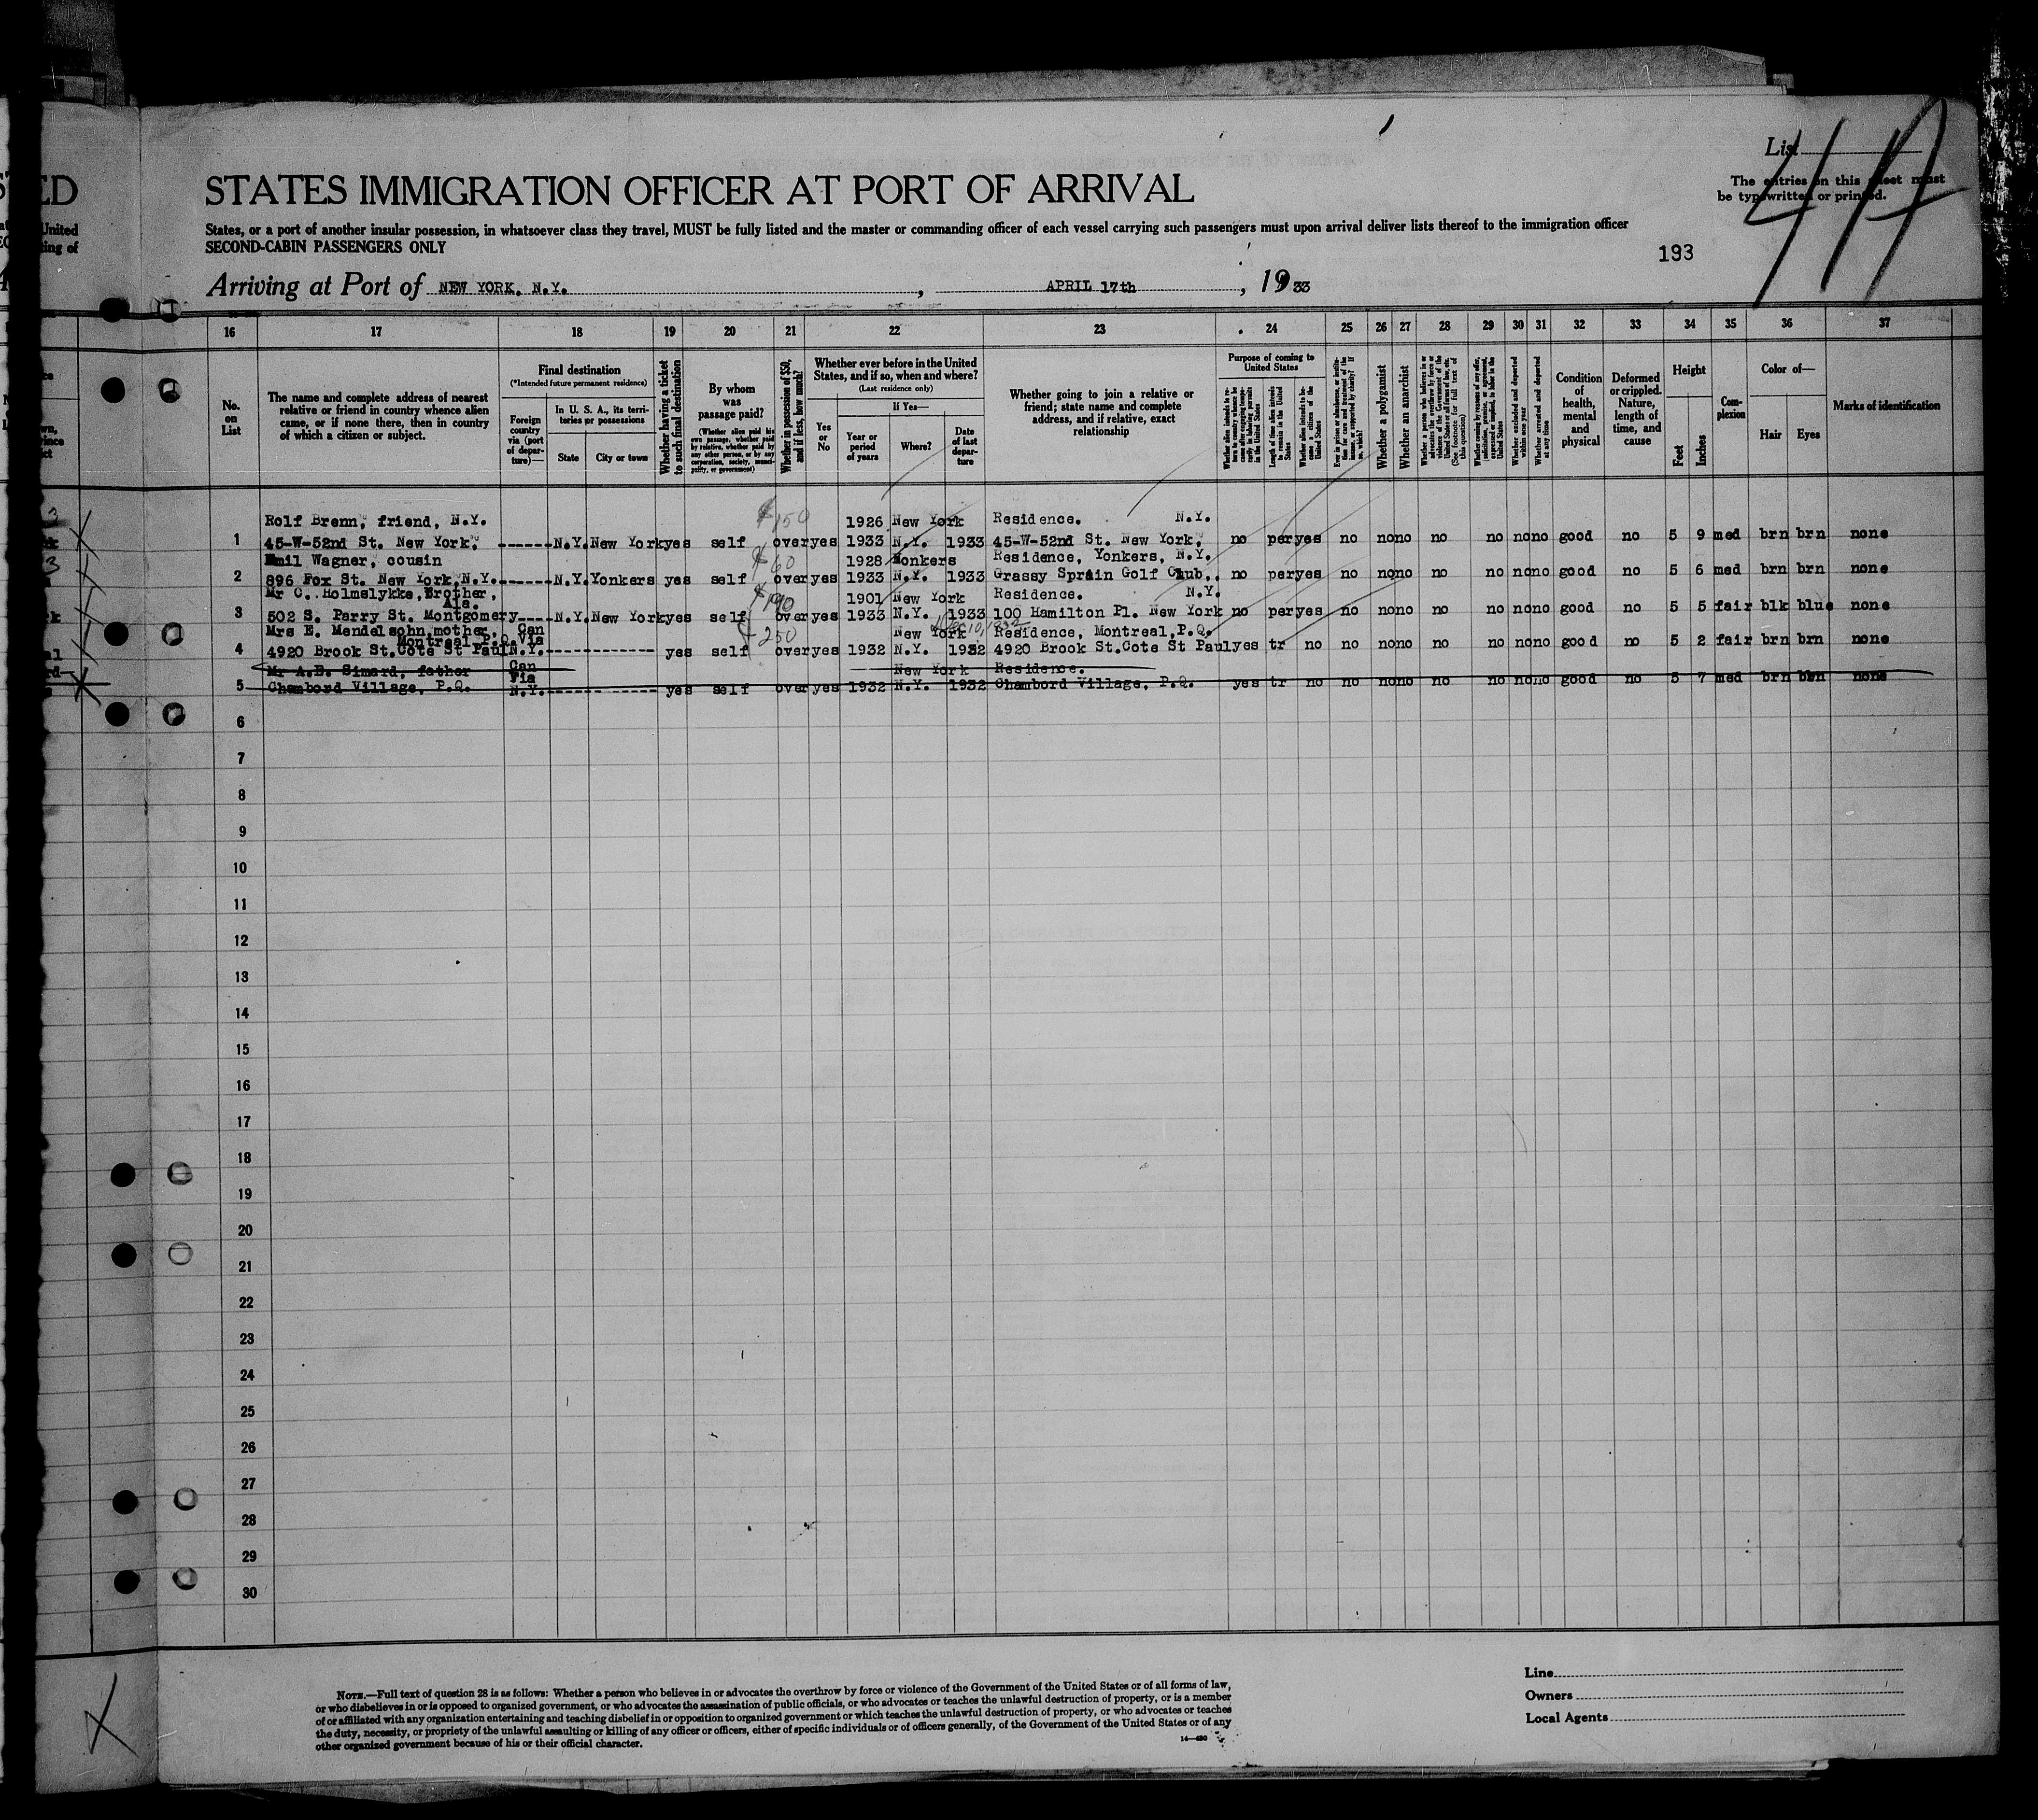 List
The entries on this sheet must
be typewritten or printed.
STATES IMMIGRATION OFFICER AT PORT OF ARRIVAL
States, or a port of another insular possession, in whatsoever class they travel, MUST be fully listed and the master or commanding officer of each vessel carrying such passengers must upon arrival deliver lists thereof to the immigration officer
SECOND-CABIN PASSENGERS ONLY
193
Arriving at Port of NEW YORK. N.Y. , APRIL 17th , 1933
16 17 18 19 20 21 22 23 24 25 26 27 28 29 30 31 32 33 34 35 36 37
No.
on
List
The name and complete address of nearest
relative or friend in country whence alien
came, or if none there, then in country
of which a citizen or subject.
Final destination
(*Intended future permanent residence)
Foreign
country
via (port
of depar-
ture)—
In U. S. A., its terri-
tories or possessions
State
City or town
Whether having a ticket
to such final destination
By whom
was
passage paid?
(Whether alien paid his
own passage, whether paid
by relative, whether paid by
any other person, or by any
corporation, society, munici-
pality, or government)
Whether in possession of $50,
and if less, how much?
Whether ever before in the United
States, and if so, when and where?
(Last residence only)
Yes
or
No
If Yes—
Year or
period
of years
Where?
Date
of last
depar-
ture
Whether going to join a relative or
friend; state name and complete
address, and if relative, exact
relationship
Purpose of coming to
United States
Length of time alien intends
to remain in the United
States
Whether alien intends to be-
come a citizen of the
United States
Whether a polygamist
Whether an anarchist
Whether excluded and deported
within one year
Whether arrested and deported
at any time
Condition
of
health,
mental
and
physical
Deformed
or crippled.
Nature,
length of
time, and
cause
Height
Feet
Inches
Com-
plexion
Color of—
Hair
Eyes
Marks of identification
Rolf Brenn, friend, N.Y. $150 1926 New York Residence. N.Y.
1 45-W-52nd St. New York. ------N.Y. New York yes self over yes 1933 N.Y. 1933 45-W-52nd St. New York. no per yes no no no no no no no good no 5 9 med brn brn none
Emil Wagner, cousin $60 1928 Yonkers Residence, Yonkers, N.Y.
2 896 Fox St. New York,N.Y.------N.Y. Yonkers yes self over yes 1933 N.Y. 1933 Grassy Sprain Golf Club. no per yes no no no no no no no good no 5 6 med brn brn none
Mr C. Holmslykke, Brother, $190 1901 New York Residence. N.Y.
Ala.
3 502 S. Parry St. Montgomery----N.Y. New York yes self over yes 1933 N.Y. 1933 100 Hamilton Pl. New York no per yes no no no no no no no good no 5 5 fair blk blue none
Mrs E. Mendelsohn,mother, Can $250 New York Dec 10, 1932 Residence, Montreal,P.Q.
Montreal P.Q. Via
4 4920 Brook St.Cote St Paul N.Y.------------ yes self over yes 1932 N.Y. 1932 4920 Brook St.Cote St Paul yes tr no no no no no no no no good no 5 2 fair brn brn none
Mr A.B. Simard, father Can New York Residence.
Via
5 Chambord Village, P.Q. N.Y.------------ yes self over yes 1932 N.Y. 1932 Chambord Village, P.Q. yes tr no no no no no no no no good no 5 7 med brn brn none
6
7
8
9
10
11
12
13
14
15
16
17
18
19
20
21
22
23
24
25
26
27
28
29
30
NOTE.—Full text of question 28 is as follows: Whether a person who believes in or advocates the overthrow by force or violence of the Government of the United States or of all forms of law,
or who disbelieves in or is opposed to organized government, or who advocates the assassination of public officials, or who advocates or teaches the unlawful destruction of property, or is a member
of or affiliated with any organization entertaining and teaching disbelief in or opposition to organized government or which teaches the unlawful destruction of property, or who advocates or teaches
the duty, necessity, or propriety of the unlawful assaulting or killing of any officer or officers, either of specific individuals or of officers generally, of the Government of the United States or of any
other organized government because of his or their official character.
14—480
Line
Owners
Local Agents